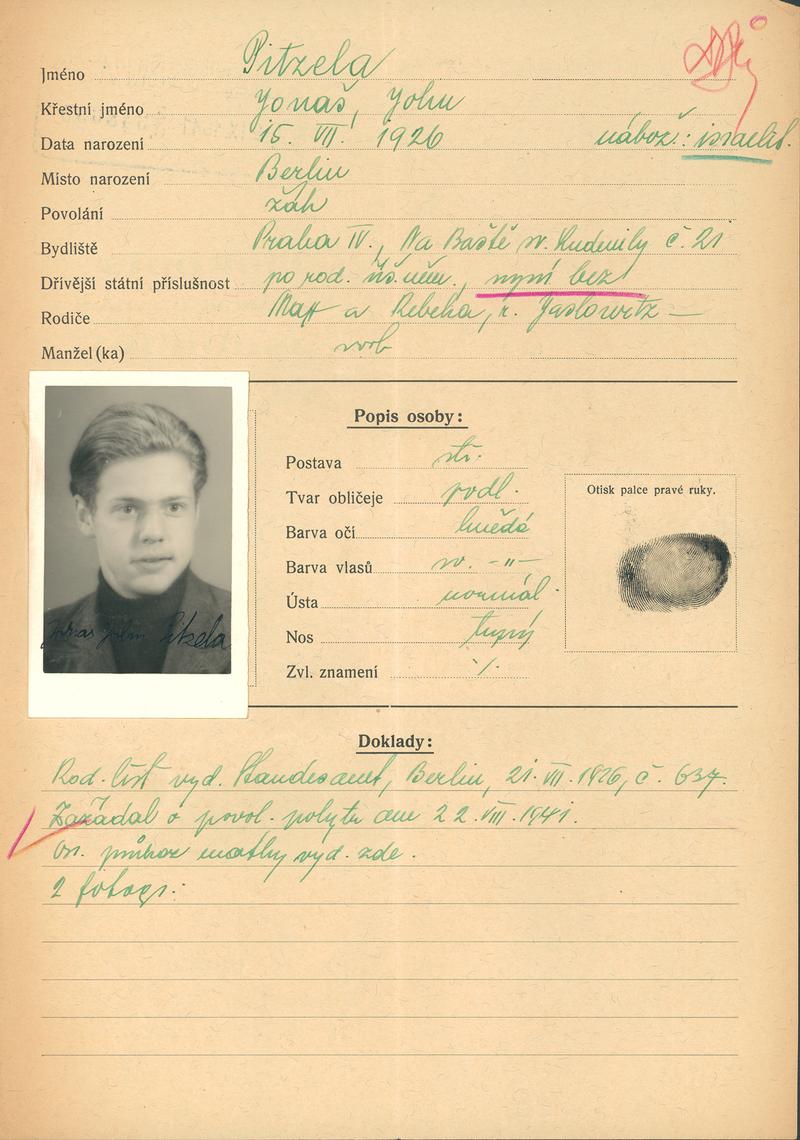 Jméno Pitzela
Křestní jméno Jonaš, John
Data narození 15. VII. 1926 nábož.: israelit.
Místo narození Berlin
Povolání žák
Bydliště Praha IV., Na Baště sv. Ludmily č. 21
Dřívější státní příslušnost po rod. něm., nyní bez
Rodiče Max a Rebeka, r. Jaslowitz —
Manžel(ka) svob
Popis osoby:
Postava stř.
Tvar obličeje podl.
Barva očí hnědé
Barva vlasů sv. -"-
Ústa normál.
Nos tupý
Zvl. znamení ·/·
Otisk palce pravé ruky.
Jonas John Pitzela
Doklady:
Rod. list vyd. Standesamt, Berlin, 21. VII. 1926, č. 637.
Zažádal o povol. pobytu dne 22. VIII. 1941.
Os. průkaz matky vyd. zde.
2 fotogr.